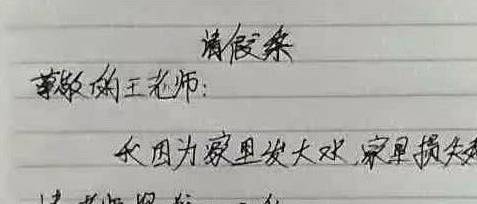 请假条
尊敬的王老师:
我因为家里发大水,家里损失
请老师